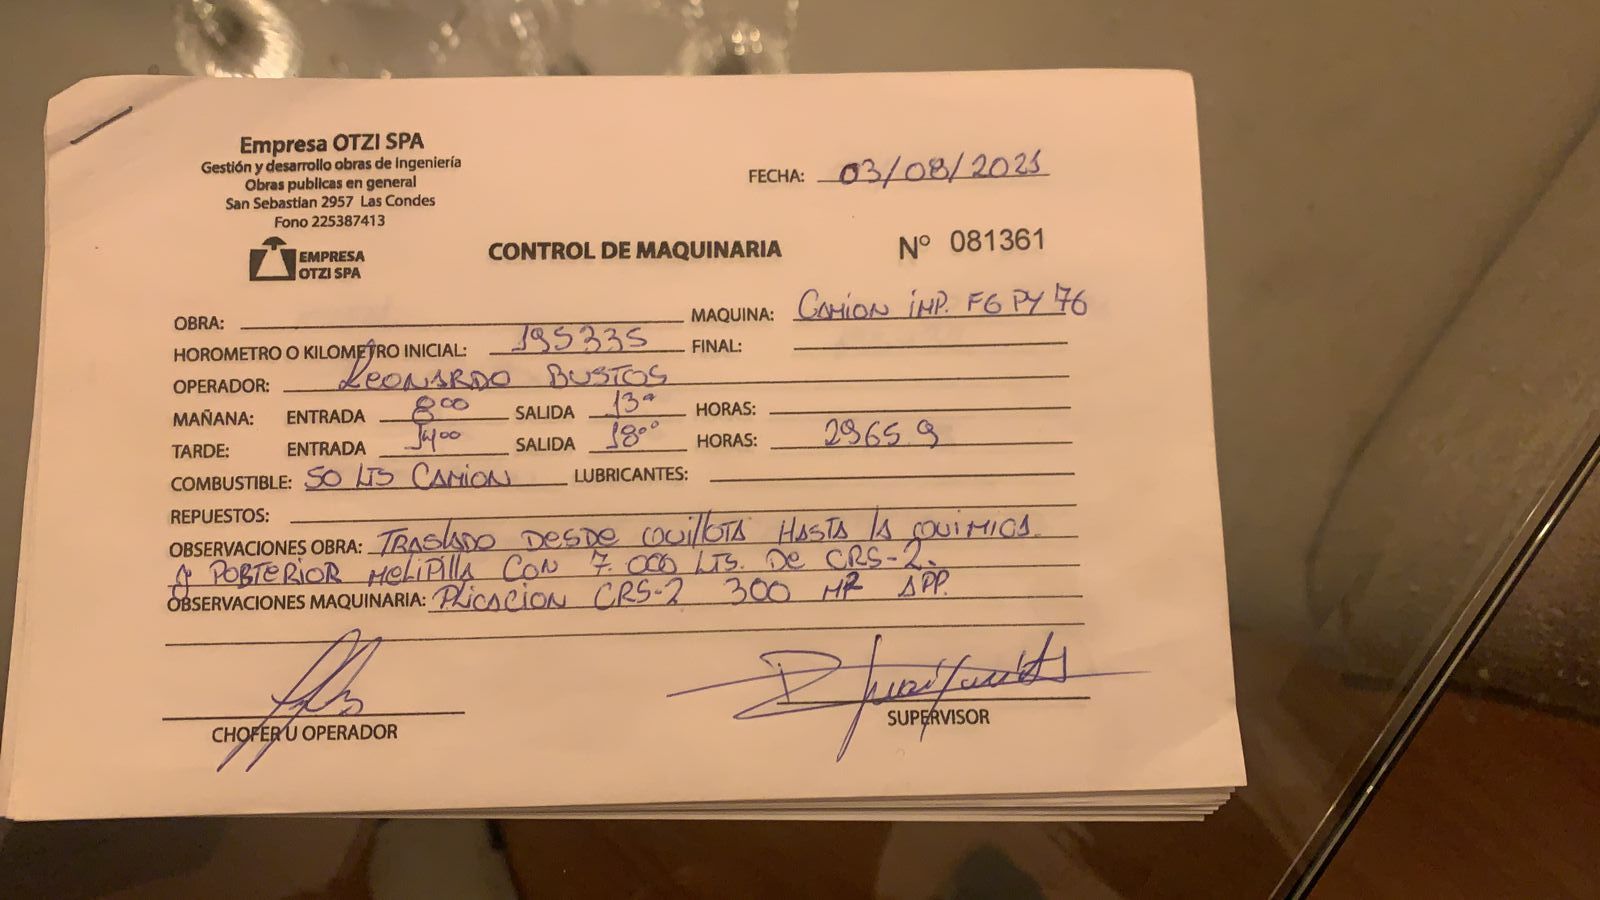 Empresa OTZI SPA
Gestión y desarrollo obras de Ingeniería
Obras publicas en general
San Sebastian 2957 Las Condes
Fono 225387413
EMPRESA
OTZI SPA
FECHA: 03/08/2021
CONTROL DE MAQUINARIA
Nº 081361
OBRA: MAQUINA: CAMION IMP. FG PY 76
HOROMETRO O KILOMETRO INICIAL: 195335 FINAL:
OPERADOR: LEONARDO BUSTOS
MAÑANA: ENTRADA 8°° SALIDA 13°° HORAS:
TARDE: ENTRADA 14°° SALIDA 18°° HORAS: 29659
COMBUSTIBLE: 50 LTS CAMION LUBRICANTES:
REPUESTOS:
OBSERVACIONES OBRA: TRASLADO DESDE QUILLOTA HASTA LA QUIMICA
y POSTERIOR MELIPILLA CON 7.000 LTS. DE CRS-2.
OBSERVACIONES MAQUINARIA: PLICACION CRS-2 300 APP.
CHOFER U OPERADOR
SUPERVISOR